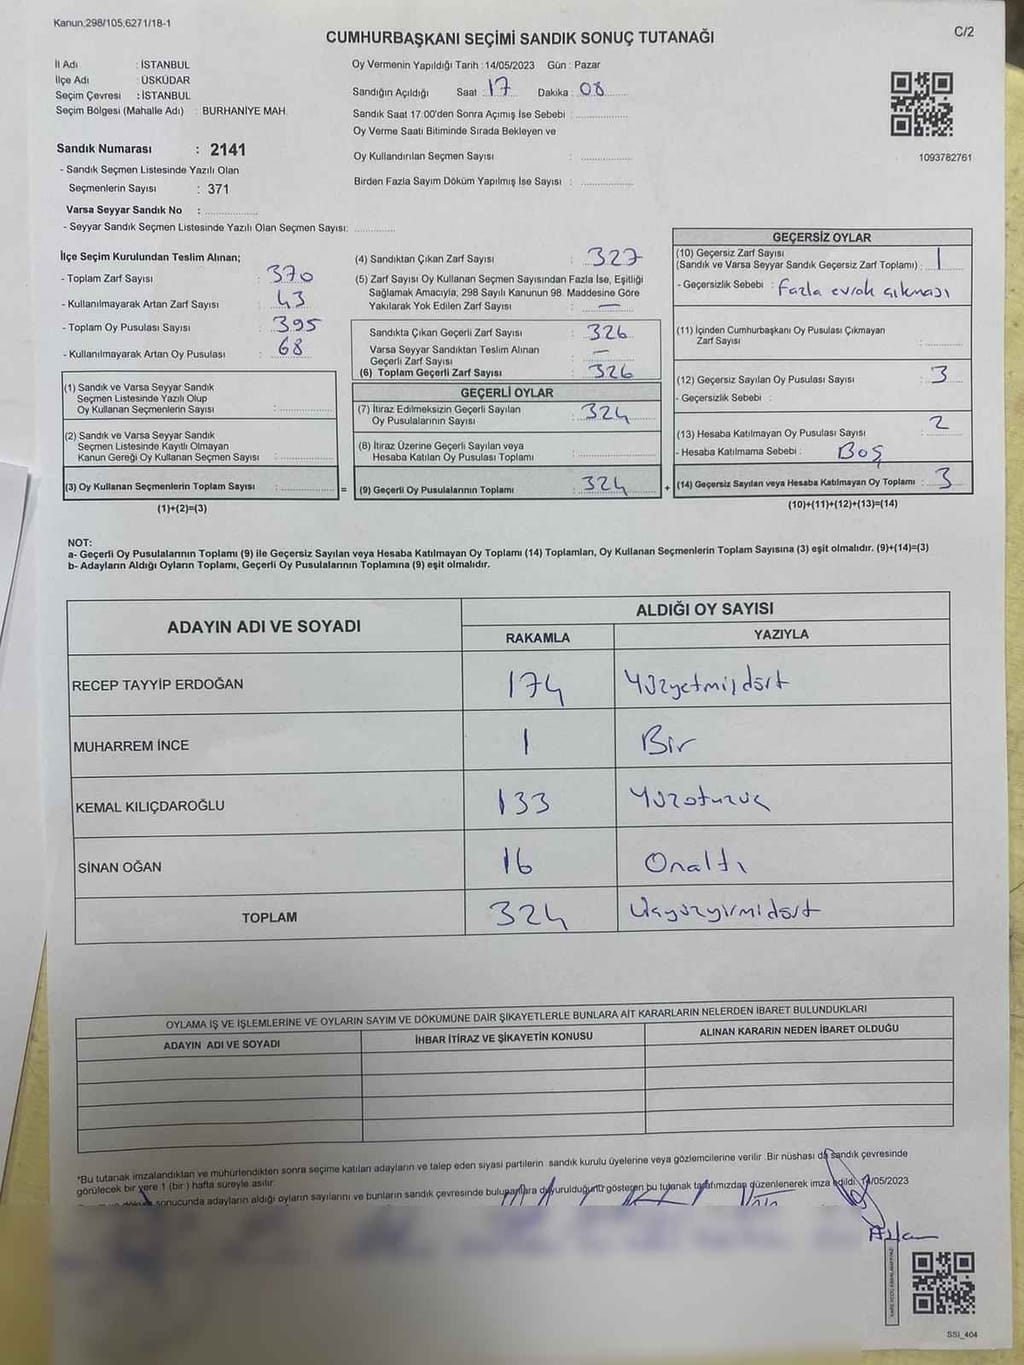 Kanun,298/105,6271/18-1
C/2
CUMHURBAŞKANI SEÇİMİ SANDIK SONUÇ TUTANAĞI
İl Adı : İSTANBUL
İlçe Adı : ÜSKÜDAR
Seçim Çevresi : İSTANBUL
Seçim Bölgesi (Mahalle Adı) : BURHANİYE MAH.
Sandık Numarası : 2141
- Sandık Seçmen Listesinde Yazılı Olan
Seçmenlerin Sayısı : 371
Varsa Seyyar Sandık No : ................
- Seyyar Sandık Seçmen Listesinde Yazılı Olan Seçmen Sayısı: ............
Oy Vermenin Yapıldığı Tarih : 14/05/2023 Gün : Pazar
Sandığın Açıldığı Saat 17 Dakika : 08
Sandık Saat 17:00'den Sonra Açımış İse Sebebi : ................
Oy Verme Saati Bitiminde Sırada Bekleyen ve
Oy Kullandırılan Seçmen Sayısı : ................
Birden Fazla Sayım Döküm Yapılmış İse Sayısı : ................
1093782761
İlçe Seçim Kurulundan Teslim Alınan;
- Toplam Zarf Sayısı : 370
- Kullanılmayarak Artan Zarf Sayısı : 43
- Toplam Oy Pusulası Sayısı : 395
- Kullanılmayarak Artan Oy Pusulası : 68
(1) Sandık ve Varsa Seyyar Sandık
Seçmen Listesinde Yazılı Olup
Oy Kullanan Seçmenlerin Sayısı : ................
(2) Sandık ve Varsa Seyyar Sandık
Seçmen Listesinde Kayıtlı Olmayan
Kanun Gereği Oy Kullanan Seçmen Sayısı : ................
(3) Oy Kullanan Seçmenlerin Toplam Sayısı : ................ =
(1)+(2)=(3)
(4) Sandıktan Çıkan Zarf Sayısı : 327
(5) Zarf Sayısı Oy Kullanan Seçmen Sayısından Fazla İse, Eşitliği
Sağlamak Amacıyla, 298 Sayılı Kanunun 98. Maddesine Göre
Yakılarak Yok Edilen Zarf Sayısı : —
Sandıkta Çıkan Geçerli Zarf Sayısı : 326
Varsa Seyyar Sandıktan Teslim Alınan
Geçerli Zarf Sayısı : —
(6) Toplam Geçerli Zarf Sayısı : 326
GEÇERLİ OYLAR
(7) İtiraz Edilmeksizin Geçerli Sayılan
Oy Pusulalarının Sayısı : 324
(8) İtiraz Üzerine Geçerli Sayılan veya
Hesaba Katılan Oy Pusulası Toplamı : ................
(9) Geçerli Oy Pusulalarının Toplamı : 324 +
GEÇERSİZ OYLAR
(10) Geçersiz Zarf Sayısı
(Sandık ve Varsa Seyyar Sandık Geçersiz Zarf Toplamı) : 1
- Geçersizlik Sebebi : fazla evrak çıkması
(11) İçinden Cumhurbaşkanı Oy Pusulası Çıkmayan
Zarf Sayısı : ............
(12) Geçersiz Sayılan Oy Pusulası Sayısı : 3
- Geçersizlik Sebebi :
(13) Hesaba Katılmayan Oy Pusulası Sayısı : 2
- Hesaba Katılmama Sebebi : Boş
(14) Geçersiz Sayılan veya Hesaba Katılmayan Oy Toplamı : 3
(10)+(11)+(12)+(13)=(14)
NOT:
a- Geçerli Oy Pusulalarının Toplamı (9) ile Geçersiz Sayılan veya Hesaba Katılmayan Oy Toplamı (14) Toplamları, Oy Kullanan Seçmenlerin Toplam Sayısına (3) eşit olmalıdır. (9)+(14)=(3)
b- Adayların Aldığı Oyların Toplamı, Geçerli Oy Pusulalarının Toplamına (9) eşit olmalıdır.
ADAYIN ADI VE SOYADI
ALDIĞI OY SAYISI
RAKAMLA YAZIYLA
RECEP TAYYİP ERDOĞAN 174 Yüzyetmişdört
MUHARREM İNCE 1 Bir
KEMAL KILIÇDAROĞLU 133 Yüzotuzüç
SİNAN OĞAN 16 Onaltı
TOPLAM 324 Üçyüzyirmidört
OYLAMA İŞ VE İŞLEMLERİNE VE OYLARIN SAYIM VE DÖKÜMÜNE DAİR ŞİKAYETLERLE BUNLARA AİT KARARLARIN NELERDEN İBARET BULUNDUKLARI
ADAYIN ADI VE SOYADI İHBAR İTİRAZ VE ŞİKAYETİN KONUSU ALINAN KARARIN NEDEN İBARET OLDUĞU
*Bu tutanak imzalandıktan ve mühürlendikten sonra seçime katılan adayların ve talep eden siyasi partilerin sandık kurulu üyelerine veya gözlemcilerine verilir. Bir nüshası da sandık çevresinde
görülecek bir yere 1 (bir) hafta süreyle asılır.
sonucunda adayların aldığı oyların sayılarını ve bunların sandık çevresinde bulunanlara duyurulduğunu gösteren bu tutanak tarafımızdan düzenlenerek imza edildi. 14/05/2023
SSI_404